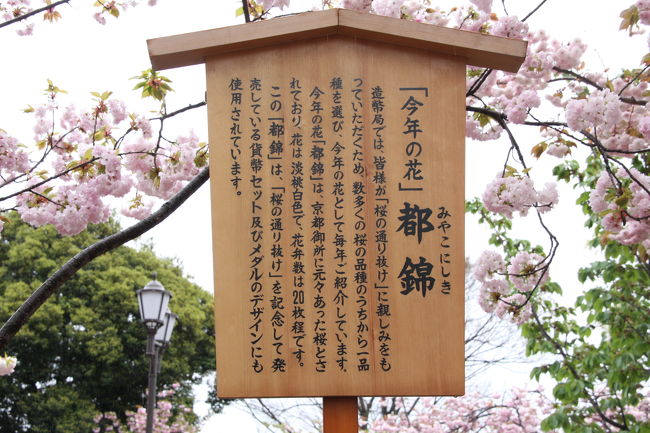 「今年の花」都錦
みやこにしき
造幣局では、皆様が「桜の通り抜け」に親しみをも
っていただくため、数多くの桜の品種のうちから一品
種を選び、今年の花として毎年ご紹介しています。
今年の花「都錦」は、京都御所に元々あった桜とさ
れており、花は淡桃白色で、花弁数は20枚程です。
この「都錦」は、「桜の通り抜け」を記念して発
売している貨幣セット及びメダルのデザインにも
使用されています。